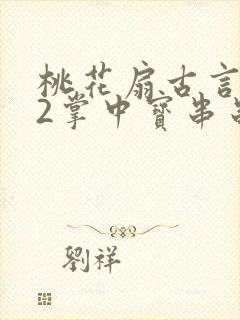 桃花扇古言
2掌中寶串
劉祥